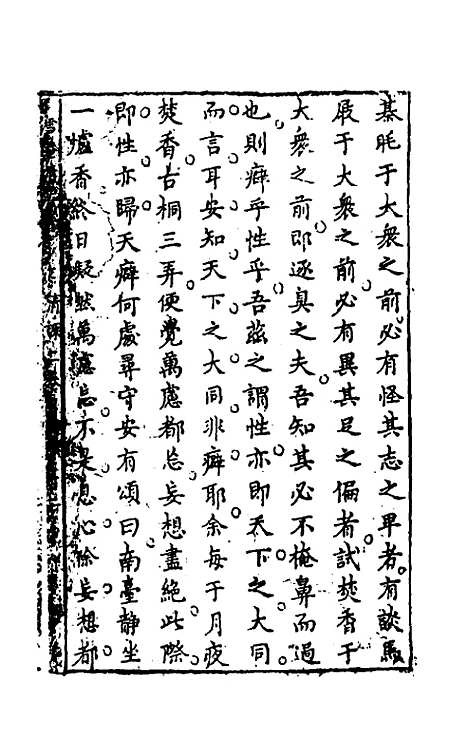 綦毦于大衆之前必有怪其志之卑者有談馬
屐于大衆之前必有異其足之偏者試焚香于
大衆之前即逐臭之夫吾知其必不掩鼻而過
也則癖乎性乎吾茲之謂性亦即天下之大同
而言耳安知天下之大同非癖耶余每于月夜
焚香古桐三弄便覺萬慮都忘妄想盡絕此際
即性亦歸天癖何處尋守安有頌曰南臺靜坐
一爐香終日凝然萬慮忘不是息心除妄想都